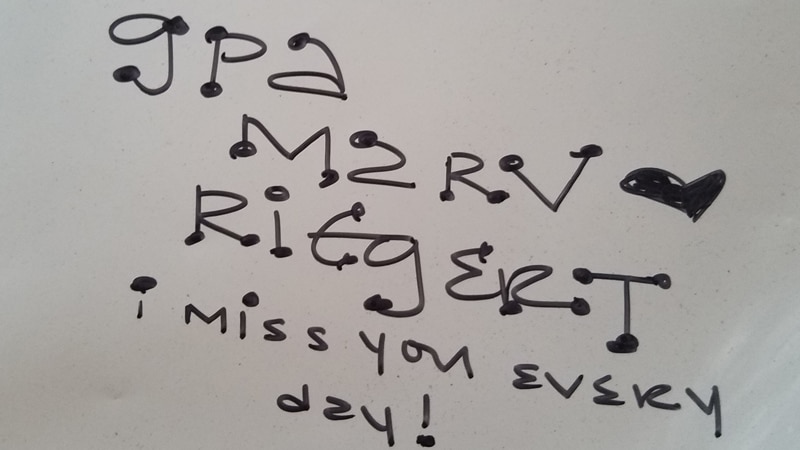 gpa
MaRV
RiEgERT
i Miss you EVERy
day!